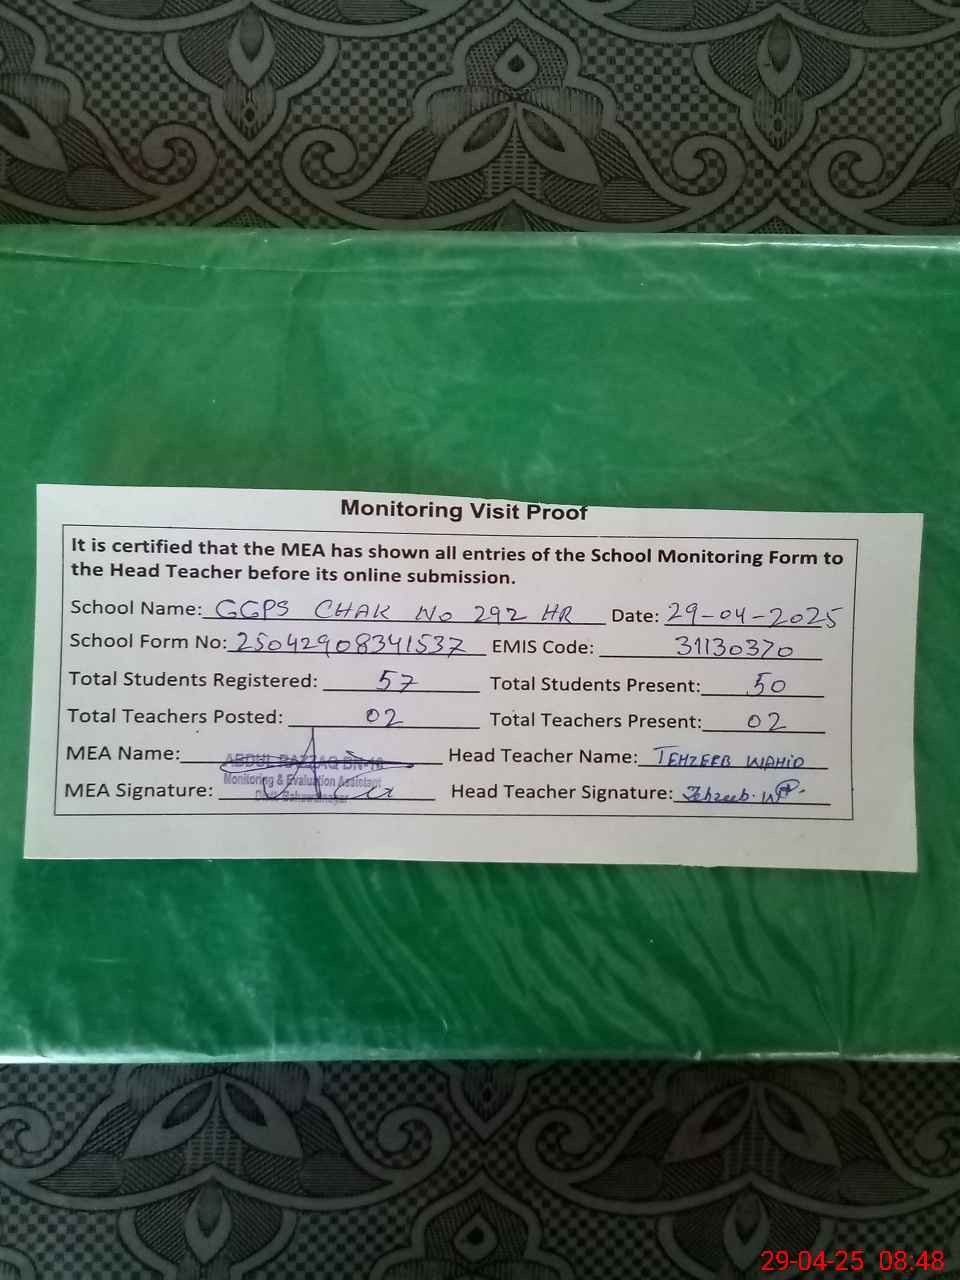 Monitoring Visit Proof
It is certified that the MEA has shown all entries of the School Monitoring Form to
the Head Teacher before its online submission.
School Name: GGPS CHAK NO 292 HR Date: 29-04-2025
School Form No: 25042908341537 EMIS Code: 31130370
Total Students Registered: 57 Total Students Present: 50
Total Teachers Posted: 02 Total Teachers Present: 02
MEA Name: ABDUL RAZZAQ Head Teacher Name: TEHZEEB WAHID
Monitoring & Evaluation Assistant
MEA Signature: Head Teacher Signature: Tehzeeb.
29-04-25 08:48